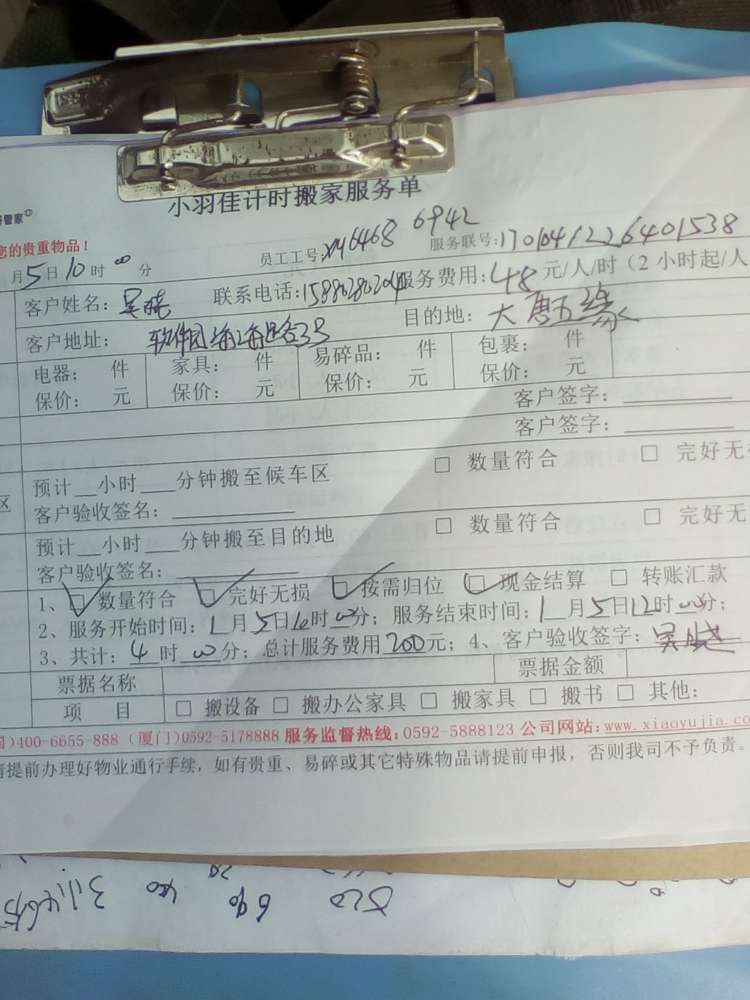 小羽佳计时搬家服务单
管家
您的贵重物品!
员工工号: 6468 6942 服务联号:1701041226401538
月5日10时00分
客户姓名:吴晓 联系电话: 服务费用:48元/人/时(2小时起/人
客户地址: 软件园 目的地:大唐五缘
电器: 件 家具: 件 易碎品: 件 包裹: 件
保价: 元 保价: 元 保价: 元 保价: 元
客户签字:
客户签字:
预计__小时___分钟搬至候车区 □ 数量符合 □ 完好无
区 客户验收签名:
预计__小时___分钟搬至目的地 □ 数量符合 □ 完好无
客户验收签名:
1、☑数量符合 ☑完好无损 ☑按需归位 ☑现金结算 □ 转账汇款
2、服务开始时间:1月5日10时00分;服务结束时间:1月5日12时00分;
3、共计:4时00分;总计服务费用200元;4、客户验收签字:吴晓
票据名称 票据金额
项 目 □ 搬设备 □ 搬办公家具 □ 搬家具 □ 搬书 □ 其他:
)400-6655-888 (厦门)0592-5178888 服务监督热线:0592-5888123 公司网站:www.xiaoyujia.co
请提前办理好物业通行手续,如有贵重、易碎或其它特殊物品请提前申报,否则我司不予负责。